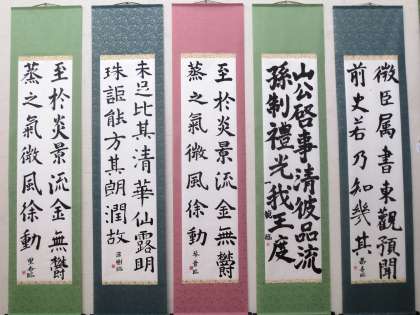 微臣属書東觀預聞
前史若乃知幾其
山公啓事清彼品流
孫制禮光我王度
至於炎景流金無鬱
蒸之氣微風徐動
未足比其清華仙露明
珠詎能方其朗潤故
至於炎景流金無鬱
蒸之氣微風徐動